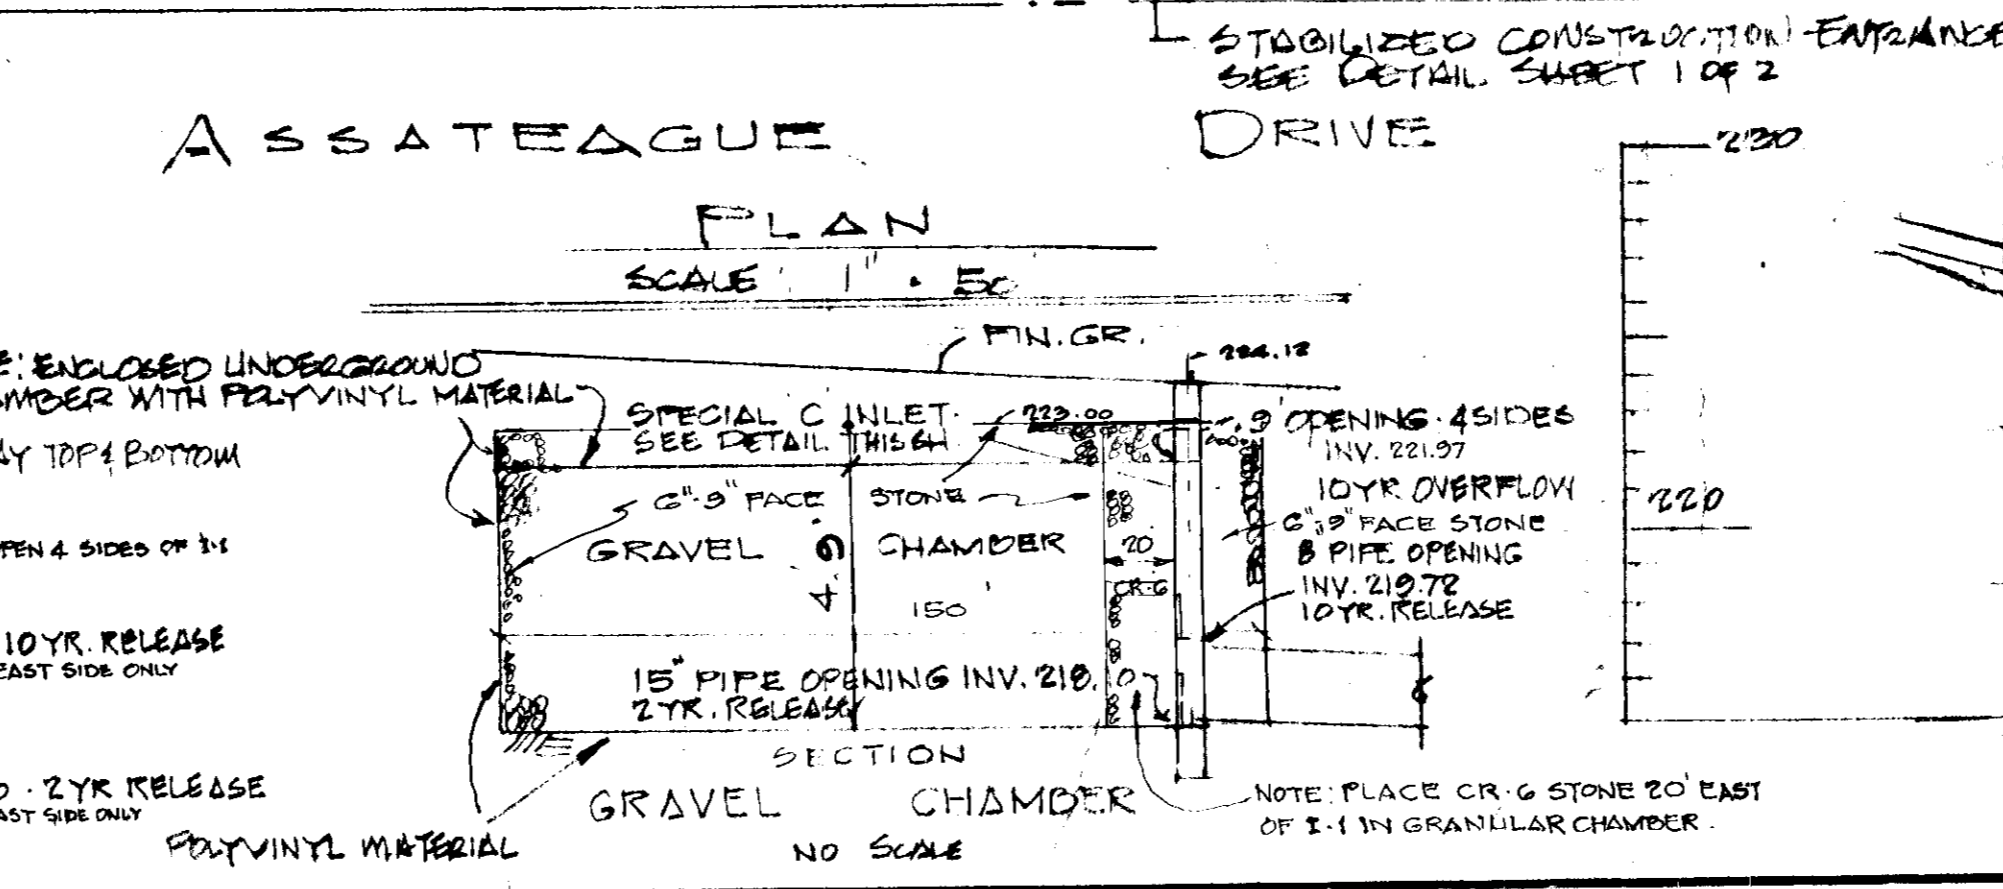 STABILIZED CONSTRUCTION ENTRANCE
SEE DETAIL SHEET 1 OF 2
ASSATEAGUE DRIVE
PLAN
SCALE: 1" = 50
FIN. GR.
E: ENCLOSED UNDERGROUND
AMBER WITH POLYVINYL MATERIAL
AY TOP & BOTTOM
PEN 4 SIDES OF I-1
10 YR. RELEASE
EAST SIDE ONLY
0 . 2 YR RELEASE
AST SIDE ONLY
POLYVINYL MATERIAL
SPECIAL C INLET
SEE DETAIL THIS SH
223.00
6"-9" FACE
STONE
GRAVEL CHAMBER
4.9
150'
20
CR-6
15" PIPE OPENING INV. 218.0
2 YR. RELEASE
9 OPENING 4 SIDES
INV. 221.97
10 YR OVERFLOW
6"-9" FACE STONE
8 PIPE OPENING
INV. 219.72
10 YR. RELEASE
SECTION
GRAVEL CHAMBER
NO SCALE
NOTE: PLACE CR-6 STONE 20' EAST
OF I-1 IN GRANULAR CHAMBER.
230
220